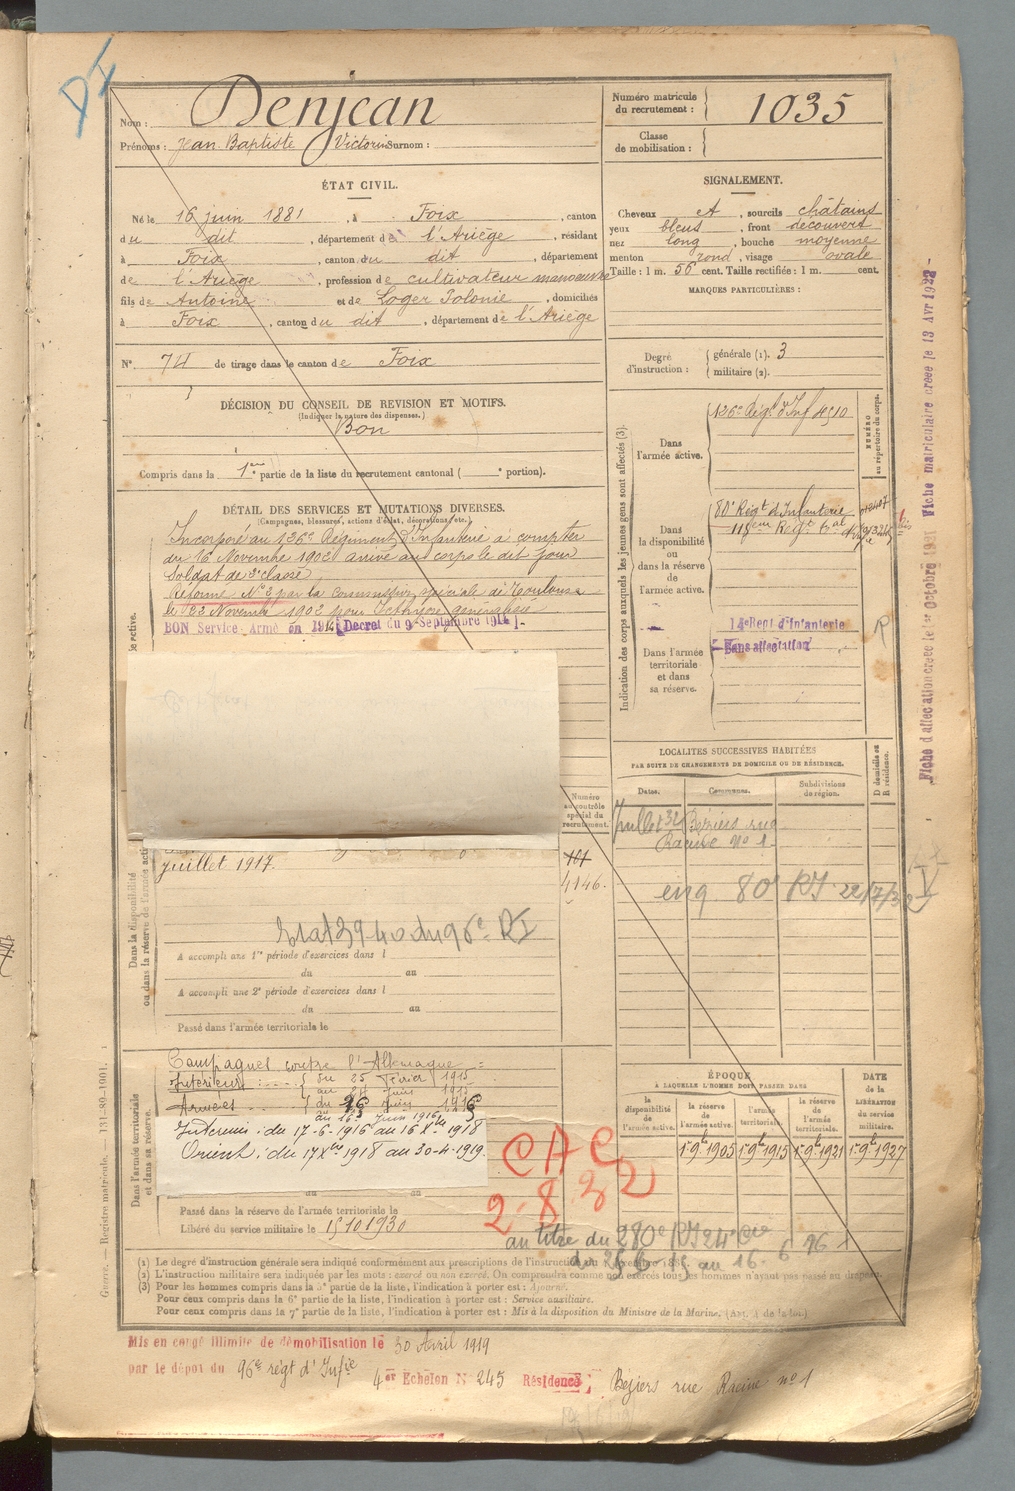 DI
Nom : Denjean
Prénoms : Jean Baptiste Victorin Surnom :
Numéro matricule du recrutement : 1035
Classe de mobilisation :
ÉTAT CIVIL.
Né le 16 juin 1881, à Foix, canton
du dit, département de l'Ariège, résidant
à Foix, canton du dit, département
de l'Ariège, profession de cultivateur manoeuvre
fils de Antoine et de Loger Polonie, domiciliés
à Foix, canton du dit, département de l'Ariège
N° 74 de tirage dans le canton de Foix
SIGNALEMENT.
Cheveux et, sourcils châtains
yeux bleus, front découvert
nez long, bouche moyenne
menton rond, visage ovale
Taille : 1 m. 56 cent. Taille rectifiée : 1 m. cent.
MARQUES PARTICULIÈRES :
Degré d'instruction :
générale (1). 3
militaire (2).
DÉCISION DU CONSEIL DE REVISION ET MOTIFS.
(Indiquer la nature des dispenses.)
Bon
Compris dans la 1ere partie de la liste du recrutement cantonal ( e portion).
DÉTAIL DES SERVICES ET MUTATIONS DIVERSES.
(Campagnes, blessures, actions d'éclat, décorations, etc.)
Incorporé au 126e Régiment d'Infanterie à compter
du 16 Novembre 1902 arrivé au corps le dit jour
Soldat de 2e classe,
Réformé N° 2 par la Commission spéciale de Toulouse
le 23 Novembre 1902 pour Icthyose généralisée
BON Service Armé en 1914 [Decret du 9 Septembre 1914].
juillet 1917.
Numéro au contrôle spécial du recrutement.
4146.
39-40 du 96e RI
A accompli une 1re période d'exercices dans l
du au
A accompli une 2e période d'exercices dans l
du au
Passé dans l'armée territoriale le
Dans la disponibilité ou dans la réserve de l'armée active
Campagnes contre l'Allemagne =
Intérieur : du 25 Février 1915
Armées du 26 Juin 1915
au 16 Juin 1916
Intérieur : du 17-6-1916 au 16 Xbre 1918
Orient : du 17 Xbre 1918 au 30-4-1919
Dans l'armée territoriale et dans sa réserve.
Passé dans la réserve de l'armée territoriale le
Libéré du service militaire le 15 10 1930
Indication des corps auxquels les jeunes gens sont affectés (3).
Dans l'armée active.
126e Régt d'Inf
NUMÉRO au répertoire du corps.
Dans la disponibilité ou dans la réserve de l'armée active.
80e Régt d'Infanterie
Dans l'armée territoriale et dans sa réserve.
14e Regt d'Infanterie
Sans affectation
LOCALITÉS SUCCESSIVES HABITÉES
PAR SUITE DE CHANGEMENTS DE DOMICILE OU DE RÉSIDENCE.
Dates. Communes. Subdivisions de région. D domicile ou R résidence.
Juillet 32 Beziers rue
Racine No 1
80e RI 22/7/32
ÉPOQUE
À LAQUELLE L'HOMME DOIT PASSER DANS
la disponibilité de l'armée active. la réserve de l'armée active. l'armée territoriale. la réserve de l'armée territoriale.
DATE de la LIBÉRATION du service militaire.
1er 9bre 1905 1er 9bre 1915 1er 9bre 1921 1er 9bre 1927
CAC
2.8.32
au titre du 280e RI 24e Cie
du 26 6 15 au 16. 6
(1) Le degré d'instruction générale sera indiqué conformément aux prescriptions de l'instruction du
(2) L'instruction militaire sera indiquée par les mots : exercé ou non exercé. On comprendra comme non exercés tous les hommes n'ayant pas passé au drapeau.
(3) Pour les hommes compris dans la 5e partie de la liste, l'indication à porter est : Ajourné.
Pour ceux compris dans la 6e partie de la liste, l'indication à porter est : Service auxiliaire.
Pour ceux compris dans la 7e partie de la liste, l'indication à porter est : Mis à la disposition du Ministre de la Marine.
Mis en congé illimité de démobilisation le 30 Avril 1919
par le dépôt du 96e régt d'Infie 4er Echelon N° 245 Résidence : Beziers rue Racine no 1
Guerre. — Registre matricule. — 131-89-1901.
Fiche d'affectation créée le 1er Octobre 1921 Fiche matriculaire créée le 13 Avr 1922